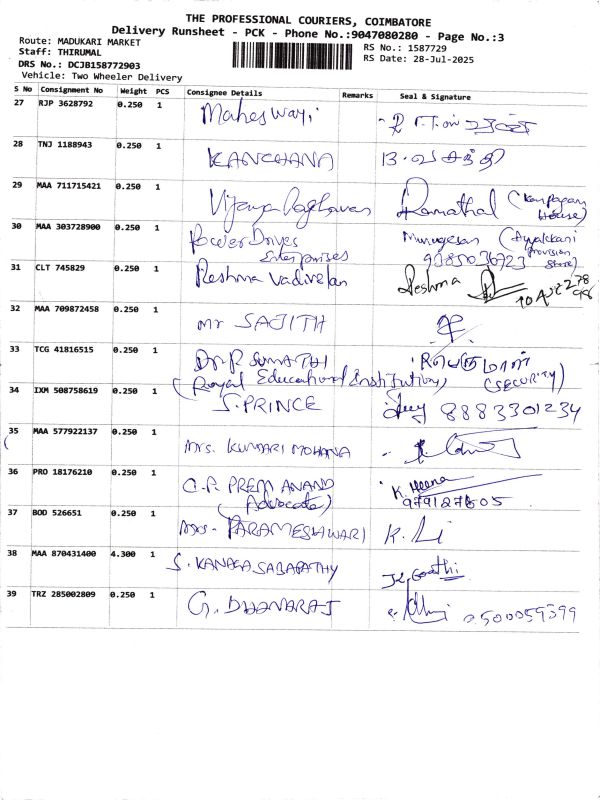 THE PROFESSIONAL COURIERS, COIMBATORE
Delivery Runsheet - PCK - Phone No.:9047080280 - Page No.:3
Route: MADUKARI MARKET
Staff: THIRUMAL
DRS No.: DCJB158772903
Vehicle: Two Wheeler Delivery
RS No.: 1587729
RS Date: 28-Jul-2025
S No Consignment No Weight PCS Consignee Details Remarks Seal & Signature
27 RJP 3628792 0.250 1 Maheswari
28 TNJ 1188943 0.250 1 KANCHANA B. வசந்தி
29 MAA 711715421 0.250 1 Vijaya Raghavan Ramathal (Kanpagam House)
30 MAA 303728900 0.250 1 Power Drives Enterprises Murugesan (Ayyakkani Provision Store)
31 CLT 745829 0.250 1 Reshma Vadivelan Reshma
32 MAA 709872458 0.250 1 Mr SAJITH
33 TCG 41816515 0.250 1 Dr. P. SUMATHI (Royal Educational Institution) பெருமாள் (SECURITY)
34 IXM 508758619 0.250 1 S. PRINCE 8883301234
35 MAA 577922137 0.250 1 Mrs. KUMARI MOHANA
36 PRO 18176210 0.250 1 C.P. PREM ANAND (Advocate) K. Heena
37 BOD 526651 0.250 1 Mrs. PARAMESHWARI
38 MAA 870431400 4.300 1 S. KANAGASABAPATHY
39 TRZ 285002809 0.250 1 G. DHANARAJ